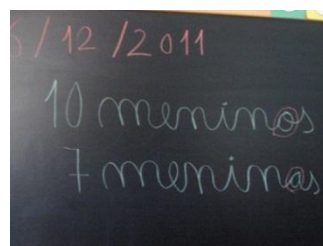 5/12/2011
10 meninos
7 meninas